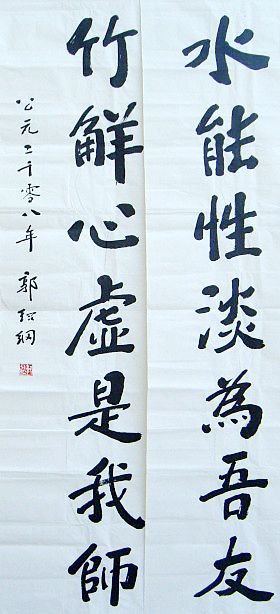 水能性淡為吾友
竹觧心虛是我師
公元二千零八年 郭紹綱